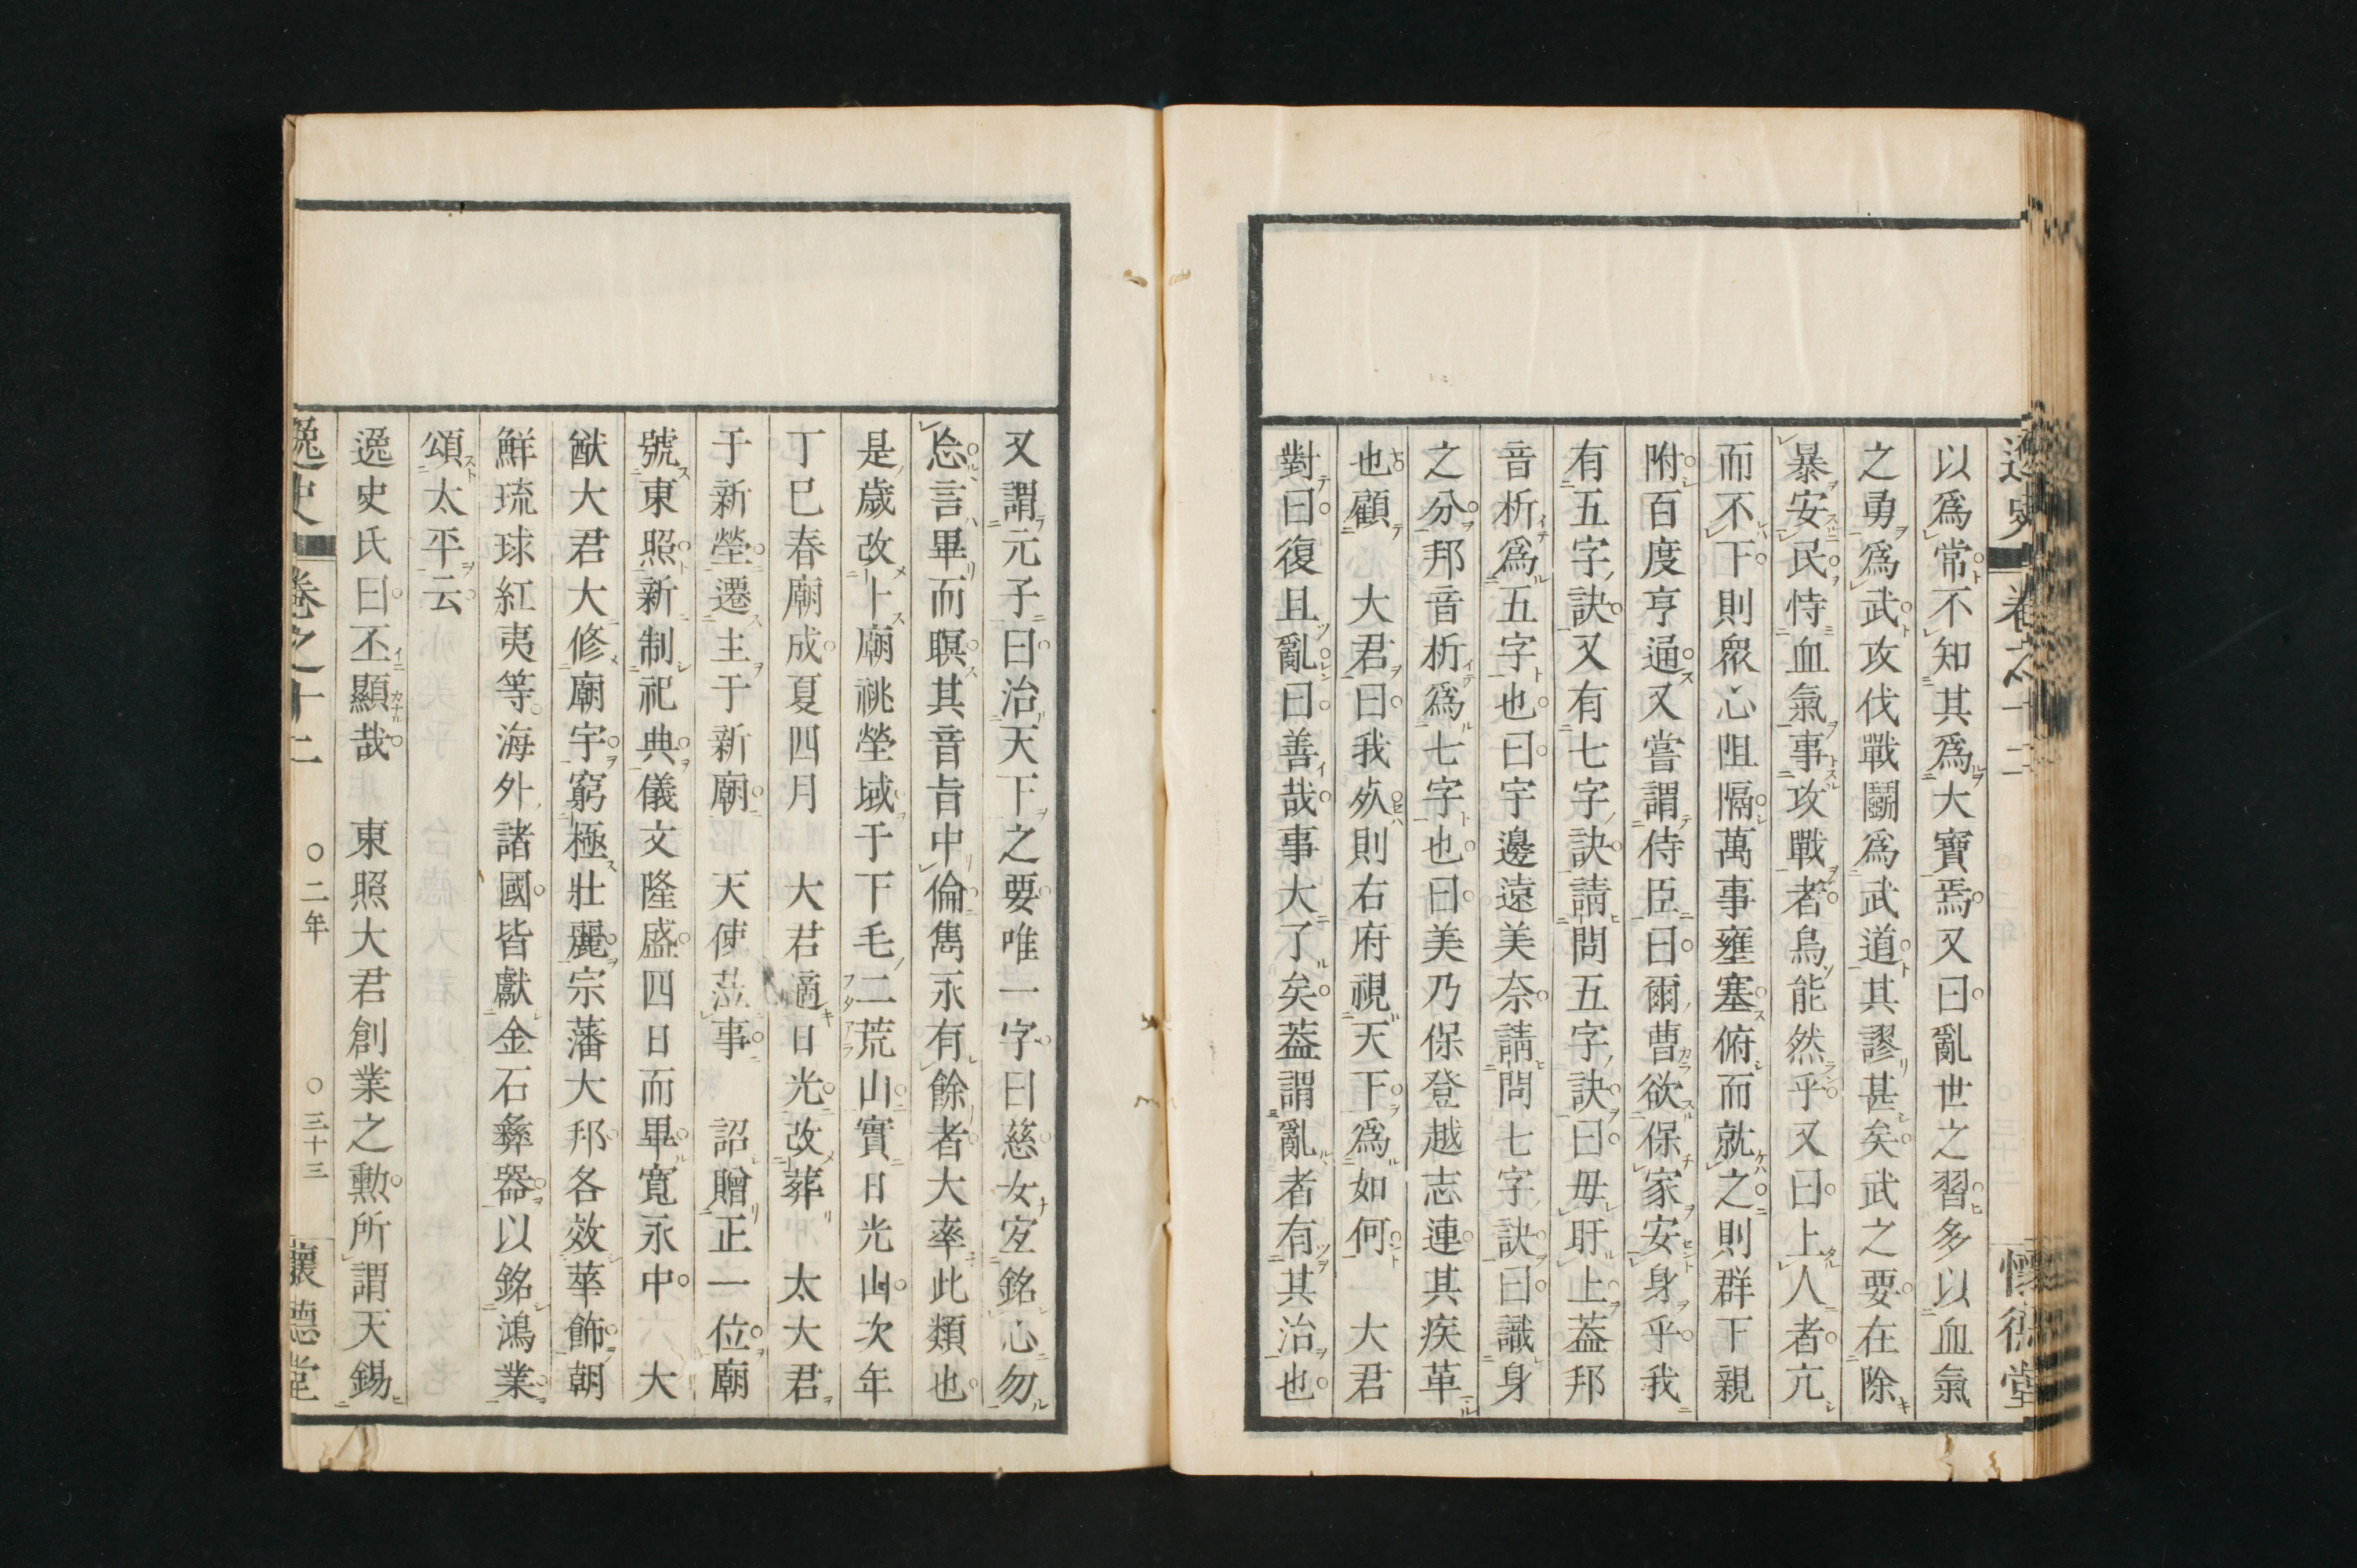 以爲常不知其爲大寶焉又曰亂世之習多以血氣
之勇爲武攻伐戰鬭爲武道其謬甚矣武之要在除
暴安民恃血氣事攻戰者烏能然乎又曰上人者亢
而不下則眾心阻隔萬事壅塞俯而就之則群下親
附百度亨通又嘗謂侍臣曰爾曹欲保家安身乎我
有五字訣又有七字訣請問五字訣曰毋盱上葢邦
音析爲五字也曰宇邊遠美奈請問七字訣曰識身
之分邦音析爲七字也曰美乃保登越志連其疾革
也顧　大君曰我歿則右府視天下爲如何　大君
對曰復且亂曰善哉事大了矣葢謂亂者有其治也
又謂元子曰治天下之要唯一字曰慈女宐銘心勿
忘言畢而瞑其音旨中倫雋永有餘者大率此類也
是歲改卜廟祧塋域于下毛二荒山實日光山次年
丁巳春廟成夏四月　大君適日光改葬　太大君
于新塋遷主于新廟　天使涖事　詔贈正一位廟
號東照新制祀典儀文隆盛四日而畢寬永中　大
猷大君大修廟宇窮極壯麗宗藩大邦各效華飾朝
鮮琉球紅夷等海外諸國皆獻金石彝器以銘鴻業
頌太平云
逸史氏曰丕顯哉　東照大君創業之勲所謂天錫
逸史 卷之十二 〇二年 〇三十三 懷德堂